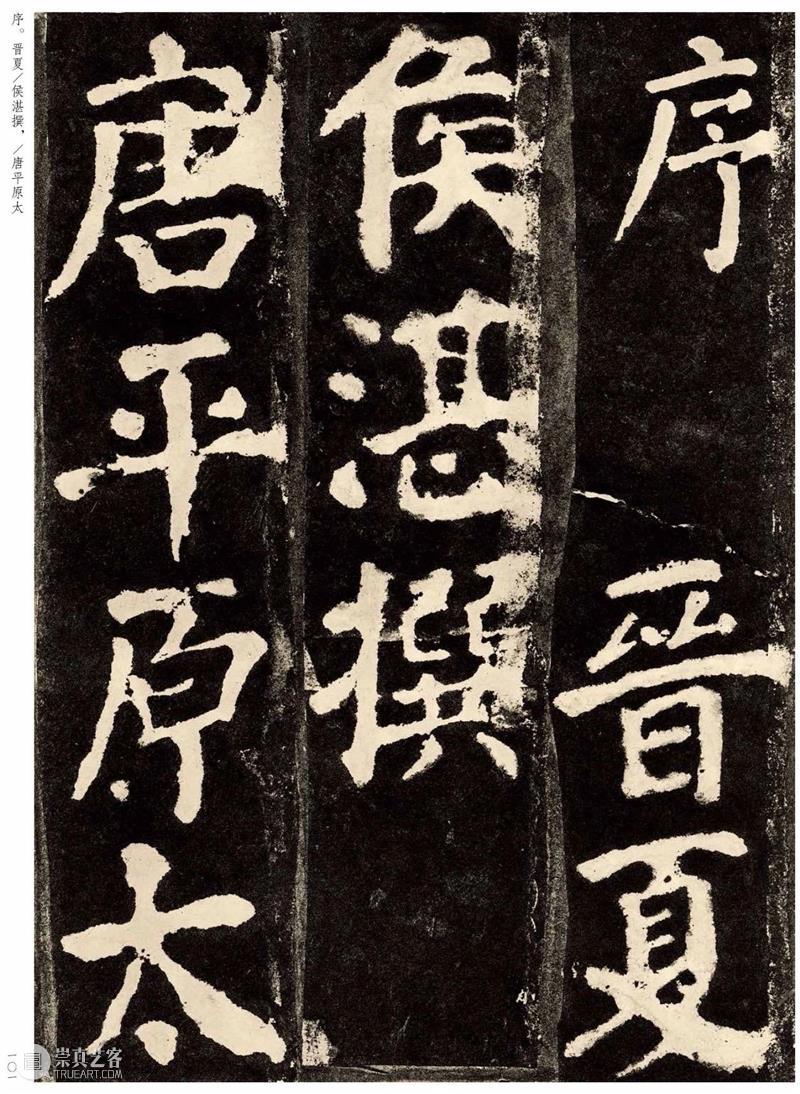 序晋夏
侯湛撰
唐平原太
序。晋夏／侯湛撰，／唐平原太
一〇一
崇真艺客
TRUEART.COM